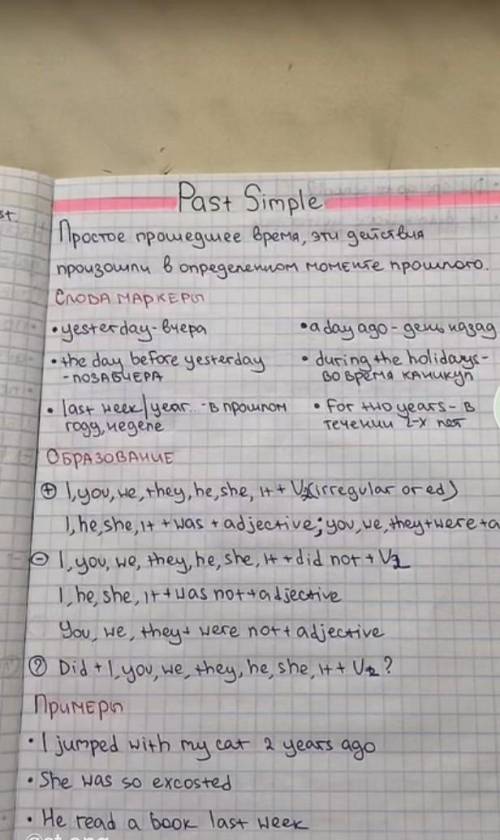 Past Simple
Простое прошедшее время, эти действия
произошли в определенном моменте прошлого.
Слова маркеры
• yesterday - вчера
• a day ago - день назад
• the day before yesterday
- позавчера
• during the holidays -
во время каникул
• last week/year - в прошлом
году, неделе
• for two years - в
течении 2-х лет
Образование
+ I, you, we, they, he, she, it + V2 (irregular or ed)
I, he, she, it + was + adjective; you, we, they + were + a
- I, you, we, they, he, she, it + did not + V1
I, he, she, it + was not + adjective
You, we, they + were not + adjective
? Did + I, you, we, they, he, she, it + V2 ?
Примеры
• I jumped with my cat 2 years ago
• She was so excosted
• He read a book last week